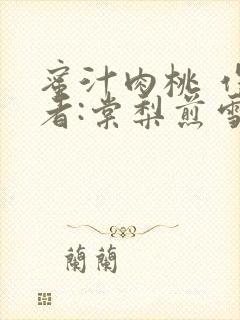 蜜汁肉桃
者:棠梨煎雪
蘭蘭